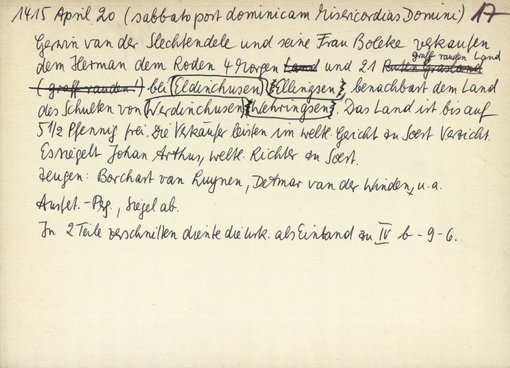 1415 April 20 (sabbato post dominicam Misericordias Domini) 17
Gerwin van der Slechtendele und seine Frau Boleke verkaufen
dem Herman dem Roden 4 Morgen Land und 21 Ruten Grasland graff rauden Land
(graff rauden!) bei (Eldinchusen) {Ellingsen}, benachbart dem Land
des Schulten von Werdinchusen {Wehringsen}. Das Land ist bis auf
5 1/2 Pfennig frei. Die Verkäufer leisten im weltl. Gericht zu Soest Verzicht.
Es siegelt Johan Arthus, weltl. Richter zu Soest.
Zeugen: Borchart van Ruynen, Detmar van der Winden, u.a.
Ausfert.-Prg., Siegel ab.
In 2 Teile zerschnitten diente die Urk. als Einband zu IV b - 9 - 6.